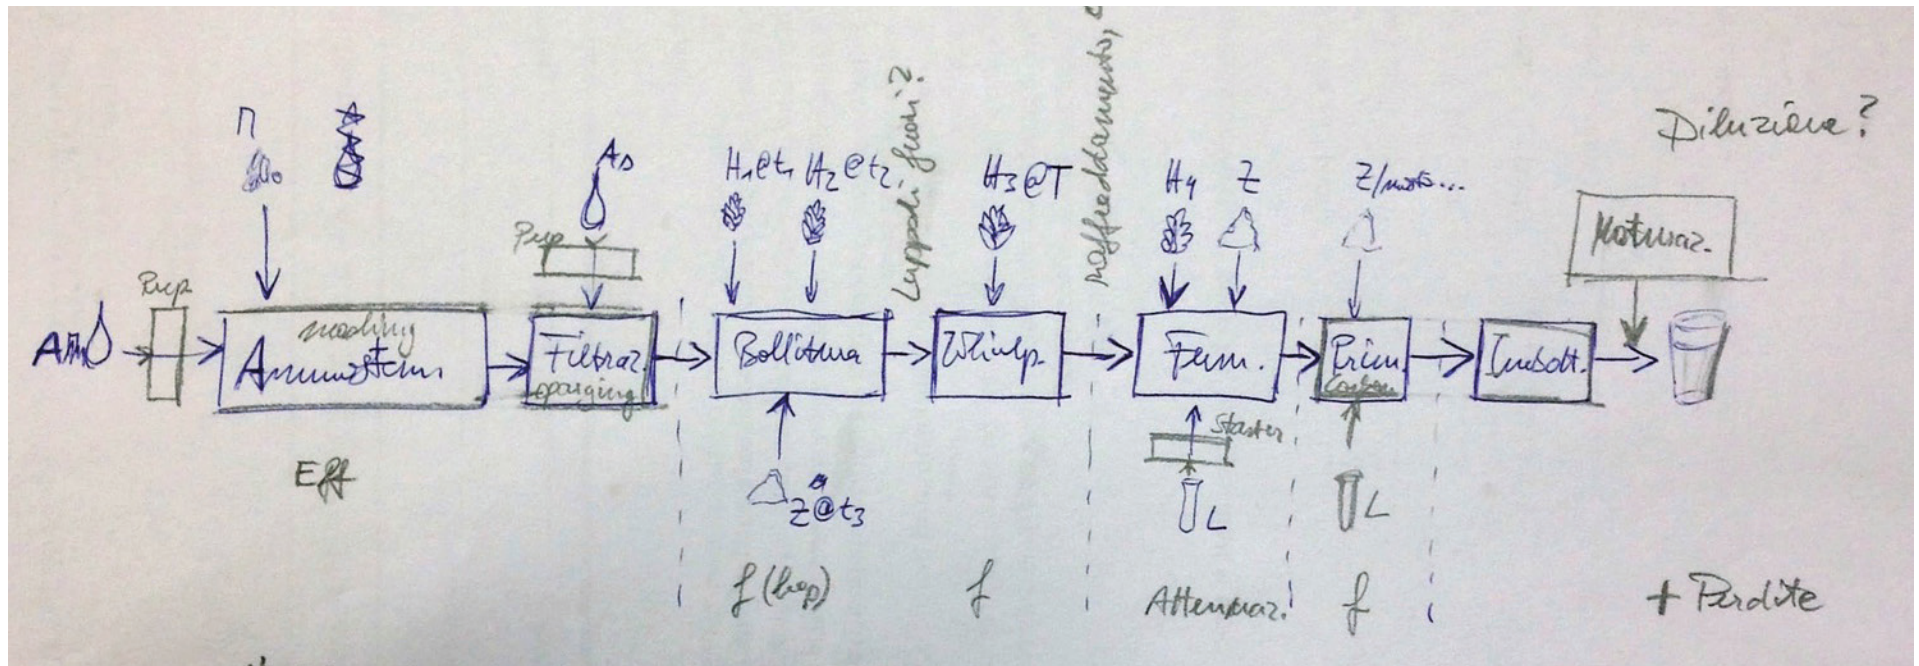 Diluizione?
Luppoli fuori?
Raffreddamento,
M
As
H1@t1
H2@t2
H3@T
H4
Z
Z/mosto...
Maturaz.
Prep
Prep
Am
mashing
Ammostam.
Filtraz.
sparging
Bollitura
Whirlp.
Ferm.
Prim.
Carbon
Imbott.
Starter
Eff
Z@t3
L
L
f(hop)
f
Attenuaz.
f
+ Perdite